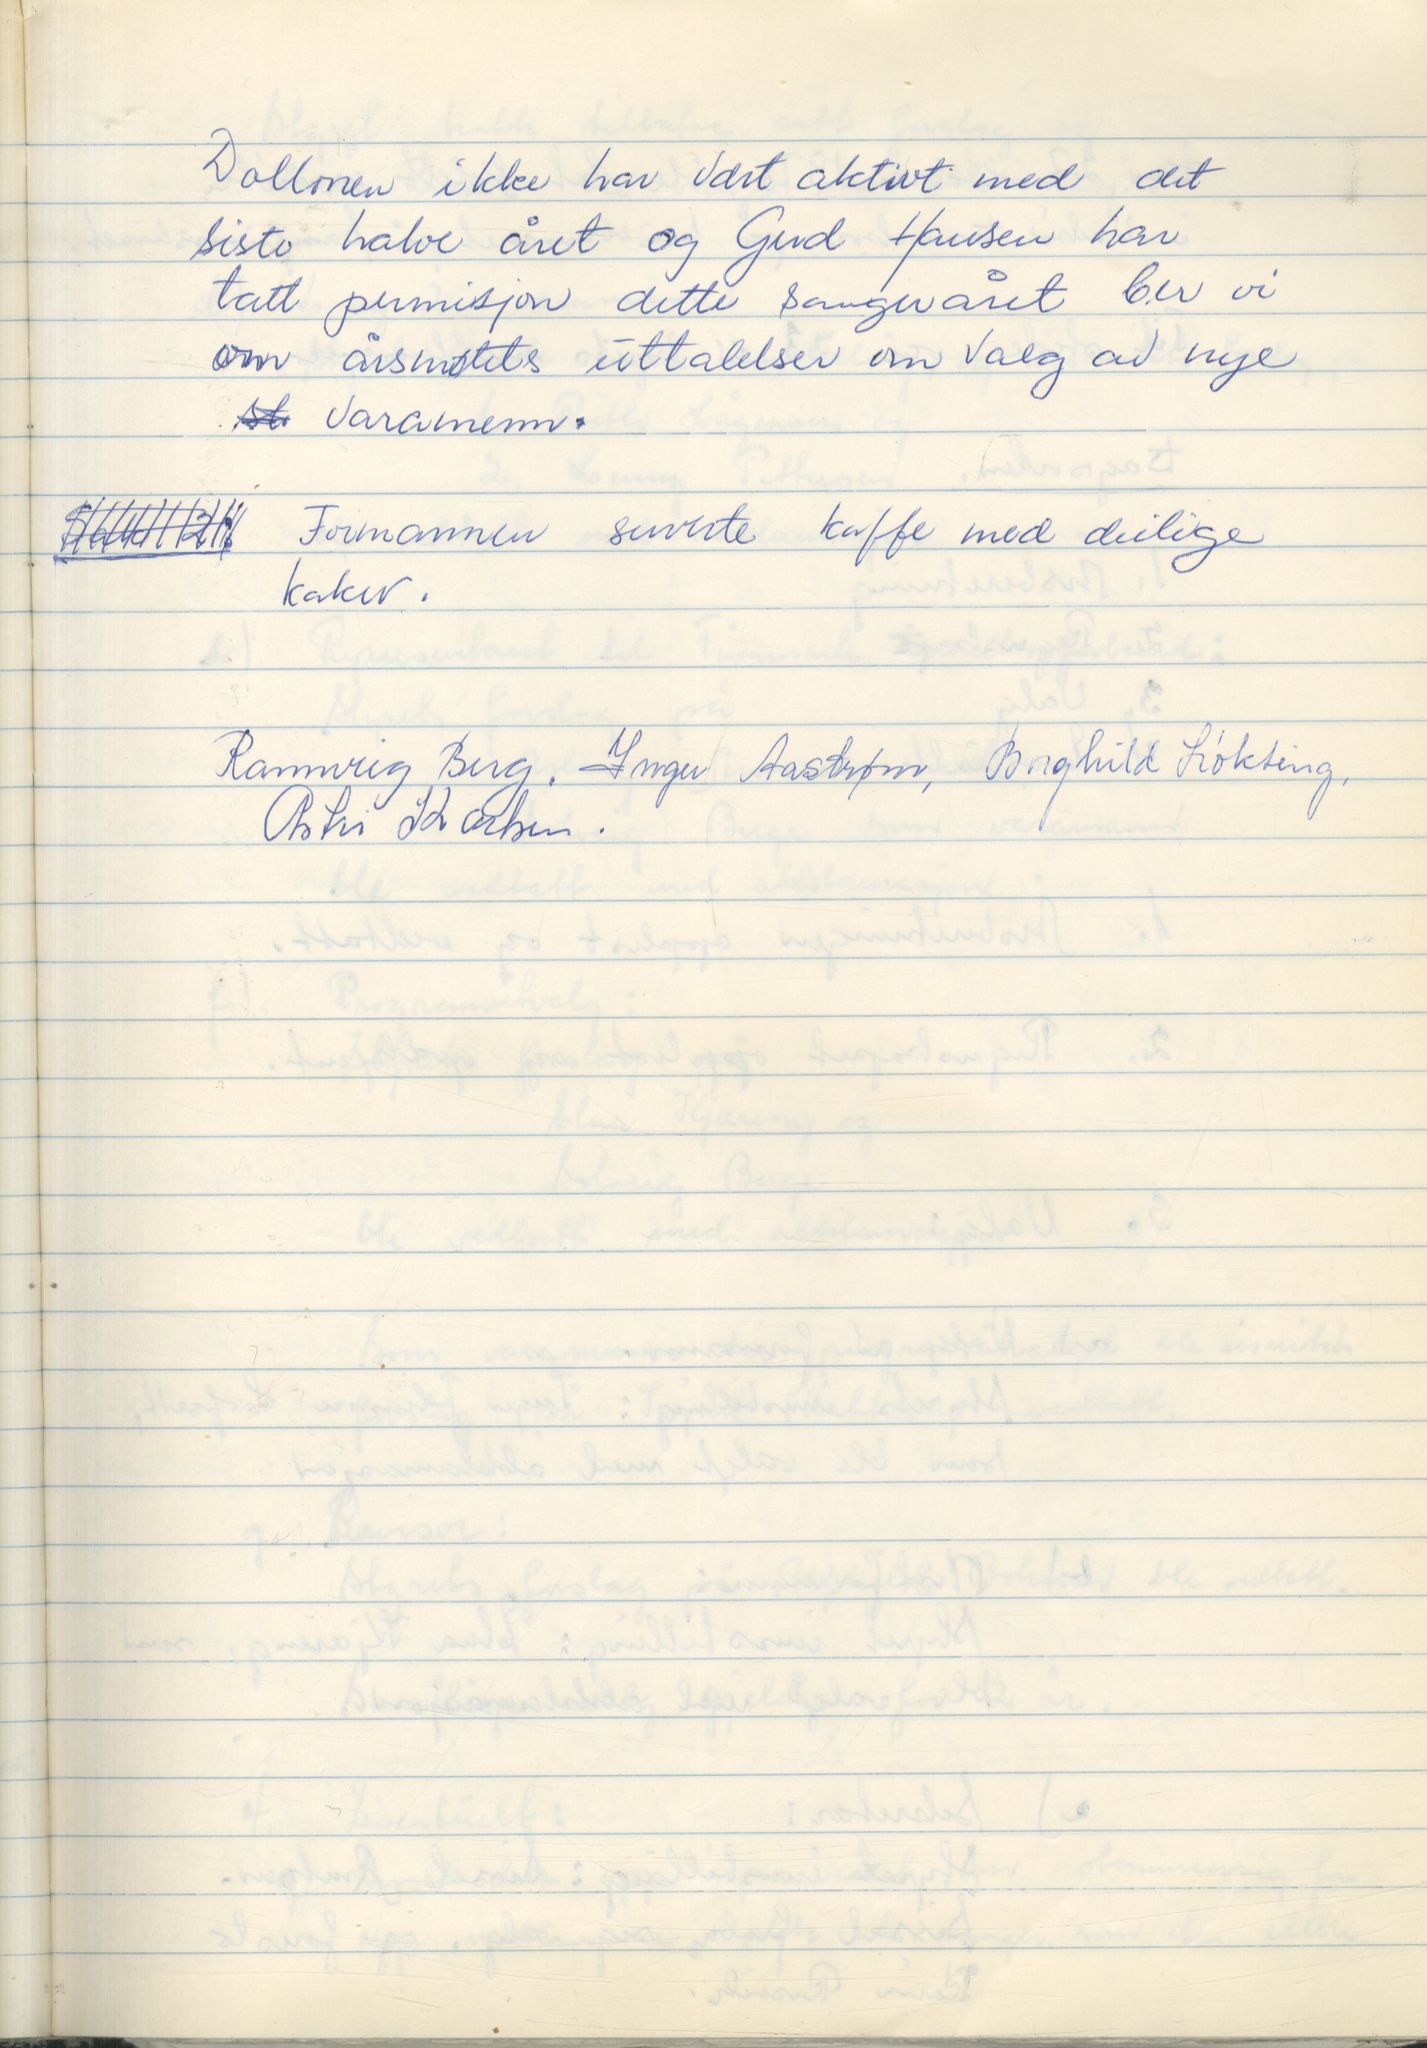 Dollonen ikke har vært aktivt med det
siste halve året og Gerd Hansen har
tatt permisjon dette sangeråret ber vi
om årsmøtets uttalelser om valg av nye
varamenn.
Formannen serverte kaffe med deilige
kaker.
Rannveig Berg, Inger Aastrøm, Borghild Løkseng,